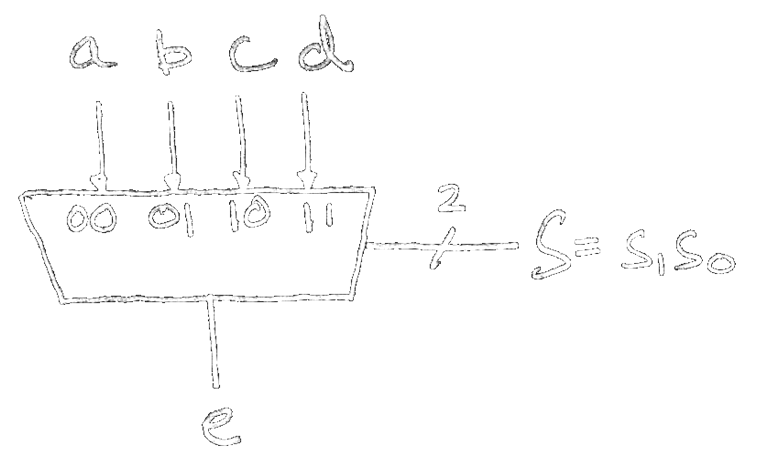 a b c d
00 01 10 11
2
S = s₁s₀
e